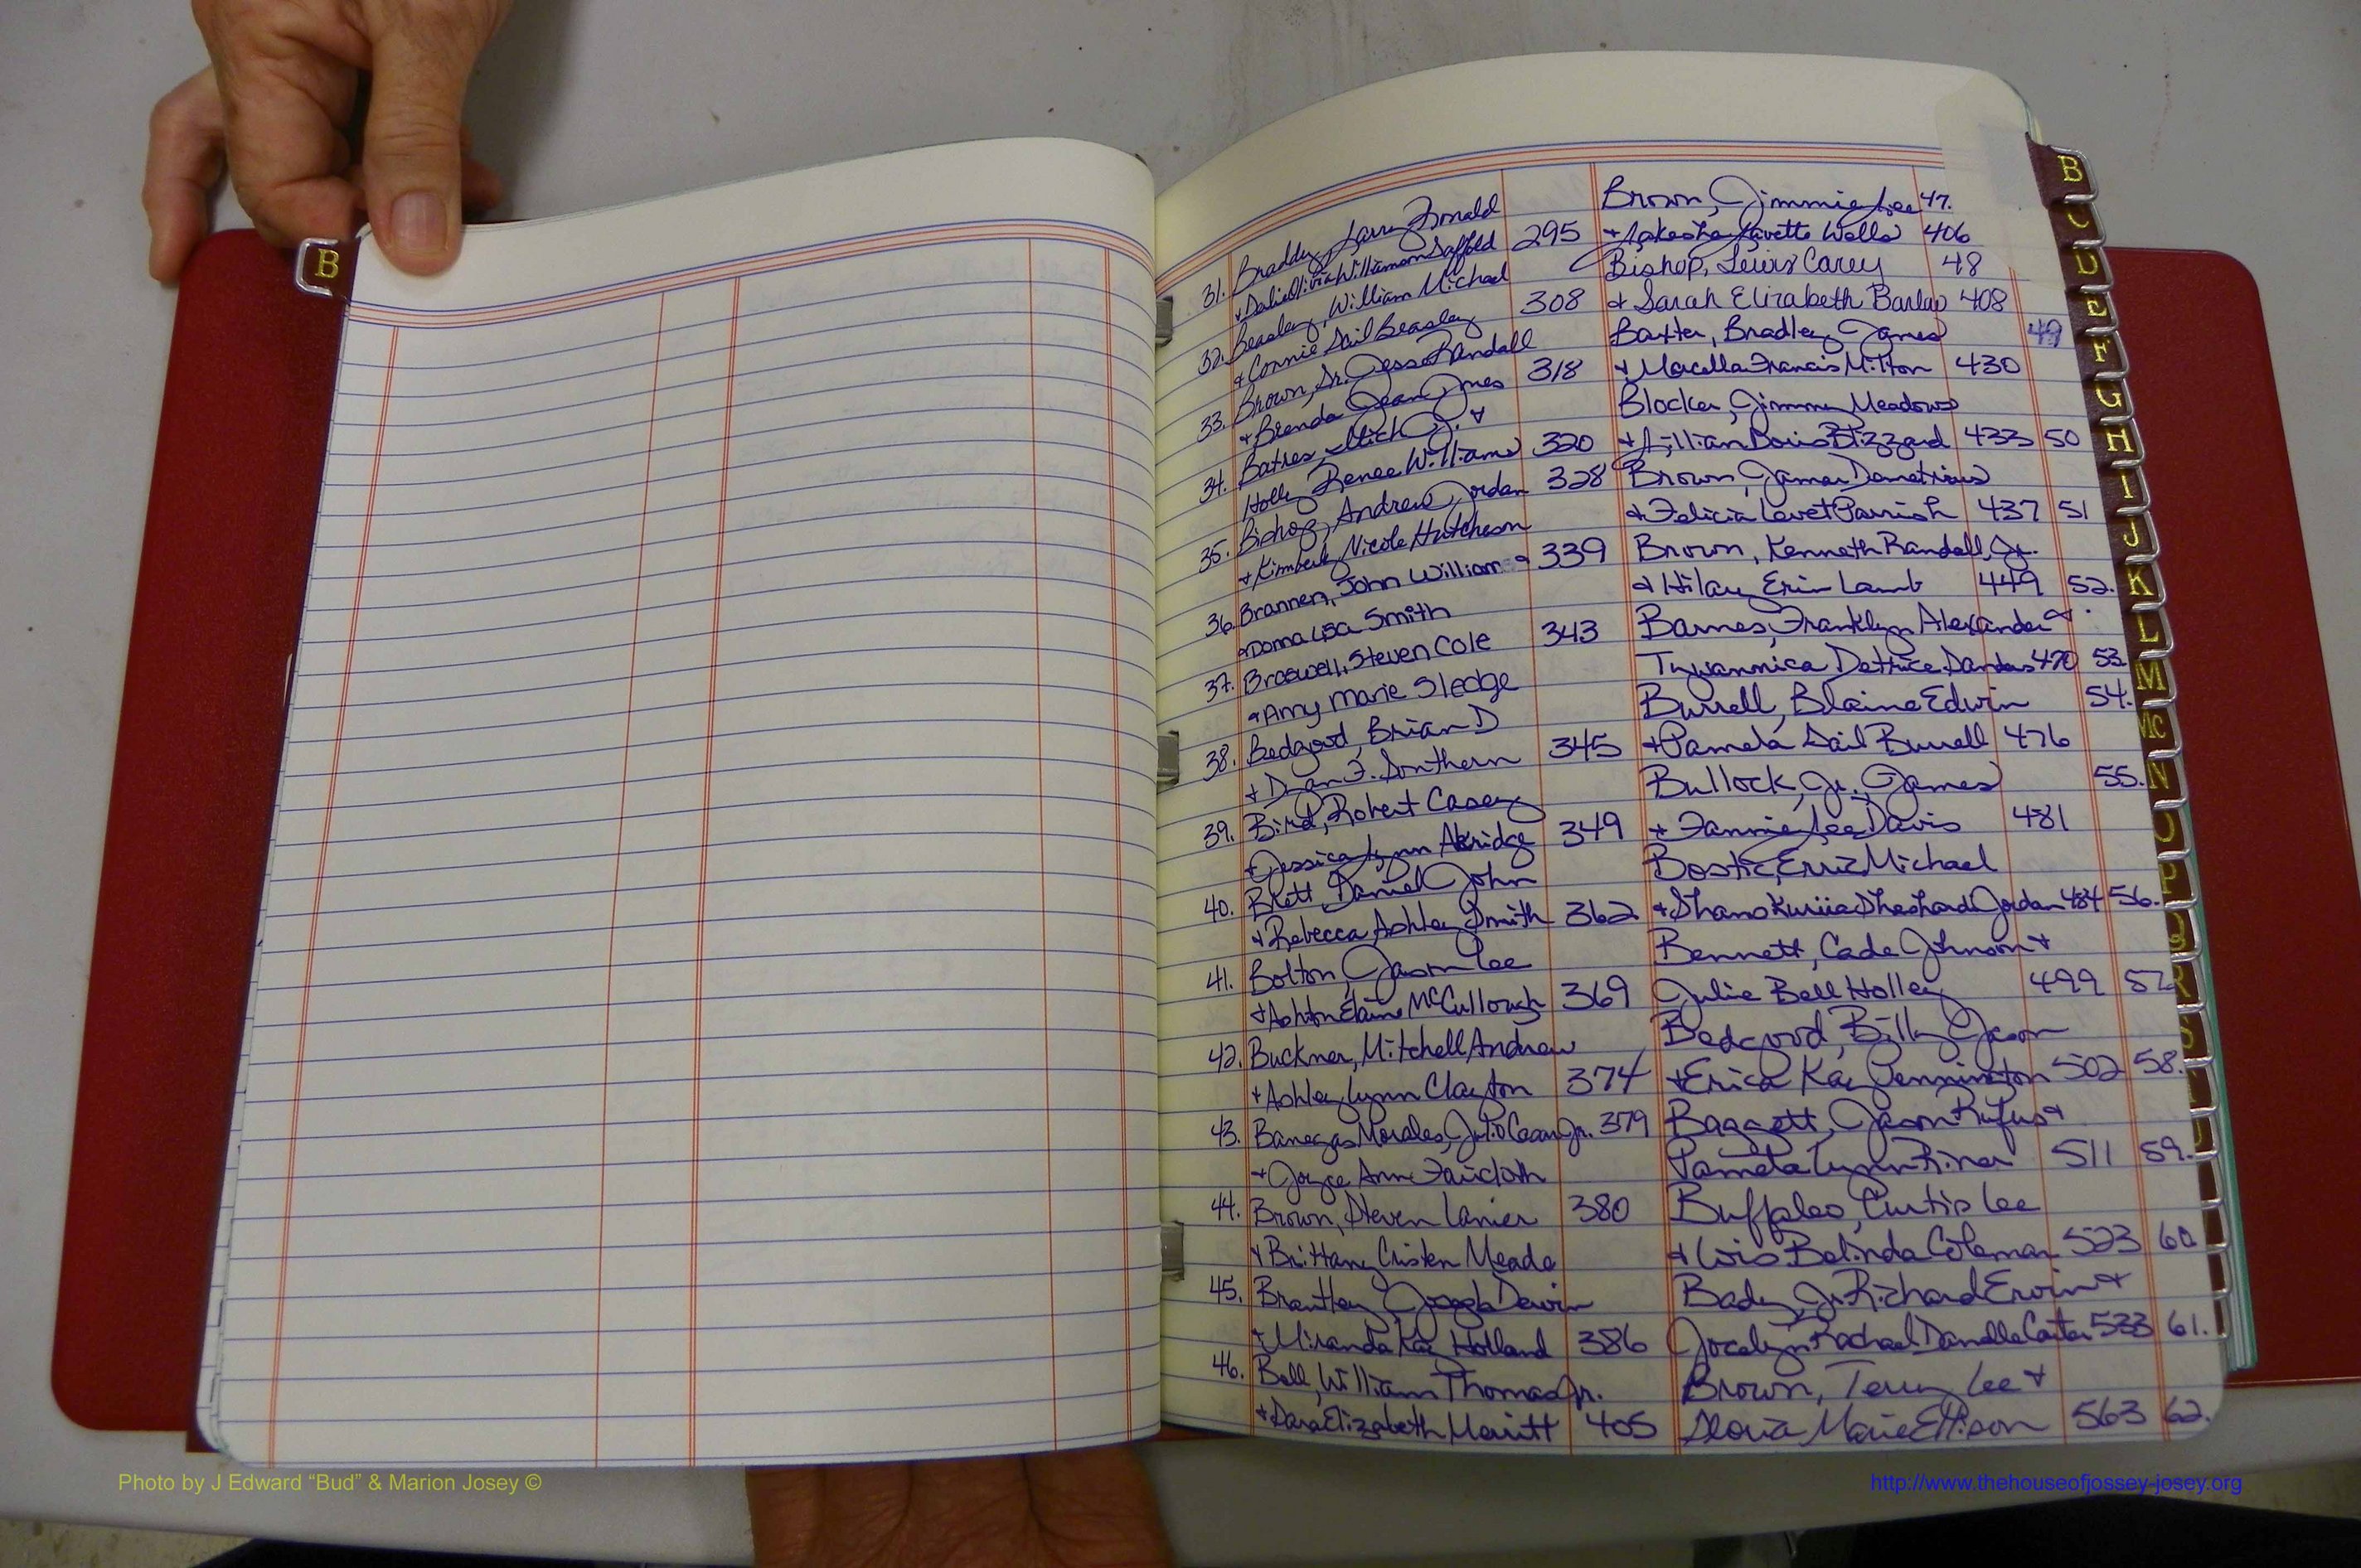 B
31. Braddy, Larry Donald
& Dalie Olivia Williamson Saffold 295
32. Beasley, William Michael
& Connie Gail Beasley 308
33. Brown, Sr. Jesse Randall
& Brenda Jean Jones 318
34. Batres, Mich J. &
Holly Renee Williams 320
35. Bishop, Andrew Jordan 328
& Kimberly Nicole Hutcheson
36. Brannen, John William & 339
& Donna Lisa Smith
37. Braswell, Steven Cole 343
& Amy Marie Sledge
38. Bedgood, Brian D
& Dyan F. Southern 345
39. Bird, Robert Casey
& Jessica Lynn Akridge 349
40. Brett, Daniel John
& Rebecca Ashley Smith 362
41. Bolton, Jason Lee
& Ashton Elaine McCullough 369
42. Buckner, Mitchell Andrew
& Ashley Lynn Clayton 374
43. Banegas Morales, Julio Cesar Jr. 379
& Joyce Ann Faircloth
44. Brown, Steven Lanier 380
& Brittany Cristen Meade
45. Brantley, Joseph Devin
& Miranda Kay Holland 386
46. Bell, William Thomas Jr.
& Sara Elizabeth Merritt 405
Brown, Jimmie Lee 47.
& Lakesha Lavette Wells 406
Bishop, Lewis Carey 48
& Sarah Elizabeth Barlow 408
Baxter, Bradley James 49
& Macella Francis Milton 430
Blocker, Jimmy Meadows
& Lillian Doris Blizzard 433 50
Brown, Jamar Demetrius
& Felicia Levet Parrish 437 51
Brown, Kenneth Randall, Jr.
& Hilary Erin Lamb 449 52.
Barnes, Franklyn Alexander &
Tywannica Dettrice Dandus 470 53.
Burrell, Blaine Edwin 54.
& Pamela Gail Burrell 476
Bullock, Jr. James 55.
& Fannie Lee Davis 481
Bostic, Erric Michael
& Jordan 484 56.
Bennett, Cade Johnson &
Julie Bell Holley 499 57.
Bedgood, Billy Jason
& Erica Kay Pennington 502 58.
Baggett, Jason Rufus &
Pamela Lynn Riner 511 59.
Buffaleo, Curtis Lee
& Lois Belinda Coleman 523 60
Bady, Jr. Richard Erwin &
Jocelyn Rachael Danella Carter 533 61.
Brown, Terry Lee &
Gloria Marie Ellison 563 62.
B
C
D
E
F
G
H
I
J
K
L
M
MC
N
O
P
Q
R
S
Photo by J Edward “Bud” & Marion Josey ©
http://www.thehouseofjossey-josey.org